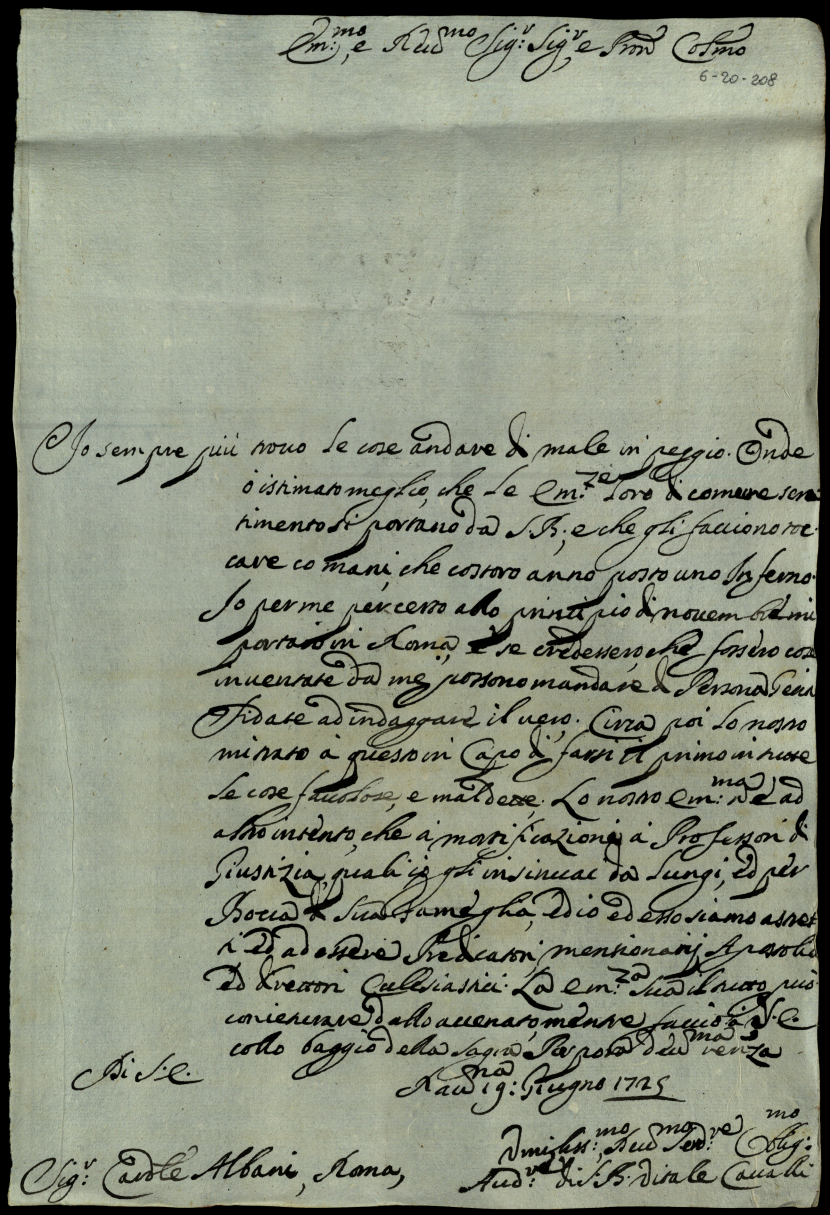 Em:mo, e Reud mo Sig:r Sig:r, e Pron Colmo
6-20-208
Io sempre più trovo le cose andare di male in peggio. Onde
ò istimato meglio, che le Em:ze loro di comune sen
timento si portano da S.R:, e che gli facciono toc
care co mani, che costoro anno posto uno Inferno.
Io per me per certo allo principio di novembre mi
portarò in Roma, e se credessero che fossero cose
inventate da me, possono mandare di Persona
fidate ad indaggare il vero. Circa poi lo nostro
mitrato à questo in Capo di farsi il primo in tutte
le cose favolose, e maldette. Lo nostro em:mo nè ad
altro intento, che à mortificazione à Professori di
Giustizia, quali io gli insinuai da lungi, ed per
Bocca di sua Fameglia, ed io ed esso siamo astret
ti ed ad essere Predicatori, mensionarij Apostolici
ed direttori Eclesiastici. La em:za sua il tutto può
conietturare dallo accenato, mentre faccio à V.E.
collo baggio della sagra Porpora
Di S.E.
19: Giugno 1725
Umiliss:mo, Reud mo Serd:re Oblig:mo
Sig:r Cardle Albani, Roma,
Aud:re di S.R: Vitale Cavalli